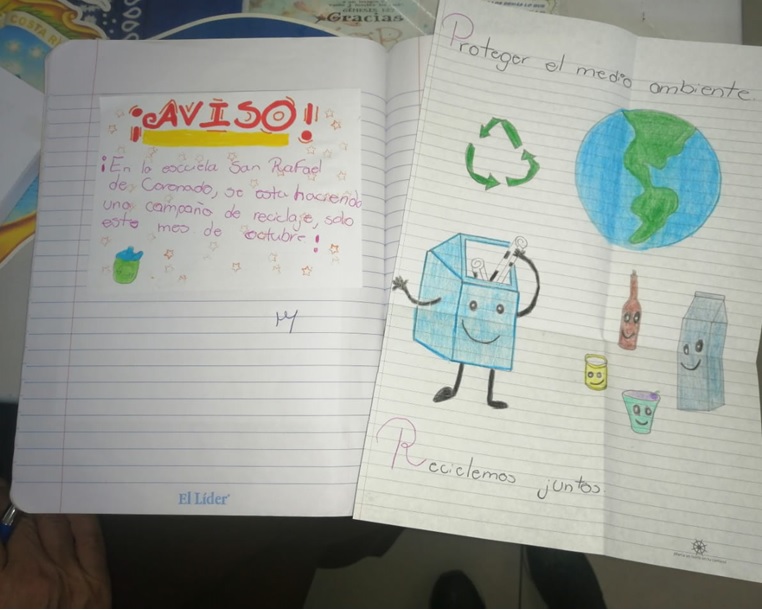 COSTA RI
Gracias
¡AVISO!
¡En la escuela San Rafael
de Coronado, se esta haciendo
una campaña de reciclaje, solo
este mes de octubre!
El Líder
Proteger el medio ambiente.
Reciclemos juntos.